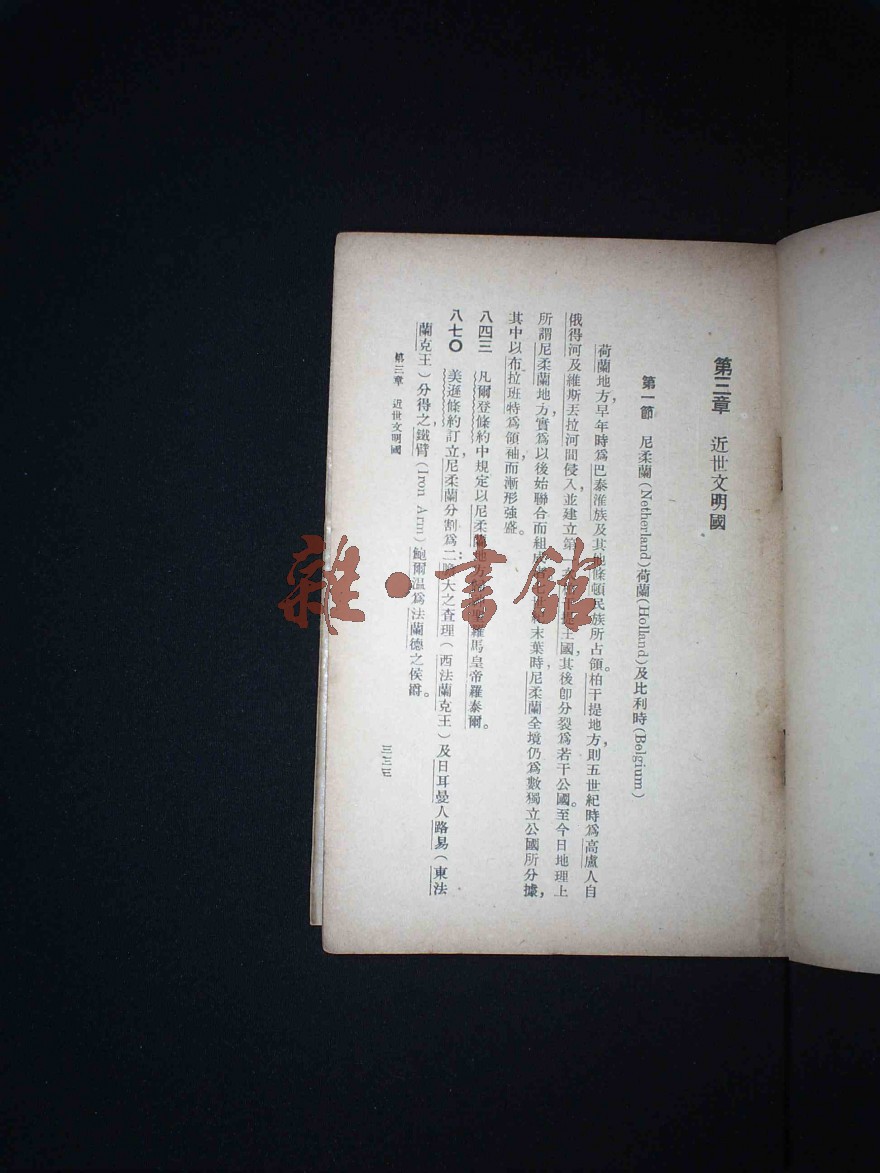 第三章 近世文明國
第一節 尼柔蘭(Netherland)荷蘭(Holland)及比利時(Belgium)
荷蘭地方，早年時爲巴泰淮族及其他條頓民族所占領。柏干提地方，則五世紀時爲高盧人自
俄得河及維斯丟拉河間侵入，並建立第一王國，其後卽分裂爲若干公國。至今日地理上
所謂尼柔蘭地方，實爲以後始聯合而組成末葉時，尼柔蘭全境仍爲數獨立公國所分據，
其中以布拉班特爲領袖，而漸形強盛。
八四三 凡爾登條約中規定以尼柔蘭地方羅馬皇帝羅泰爾。
八七〇 美遜條約訂立，尼柔蘭分割爲二：大之查理(西法蘭克王)及日耳曼人路易(東法
蘭克王)分得之，鐵臂(Iron Arm)鮑爾温爲法蘭德之侯爵。
第三章 近世文明國
三三五
雜·書館